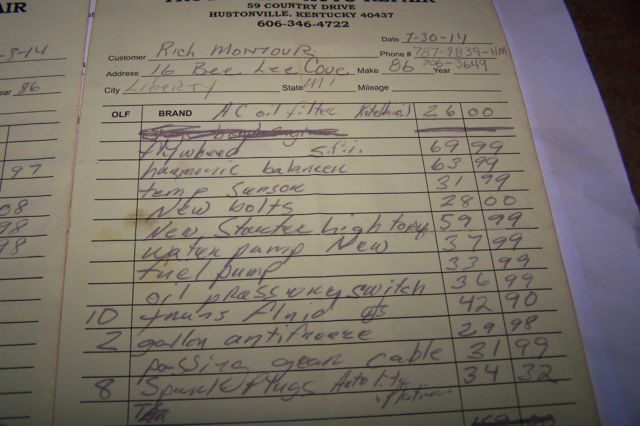 59 COUNTRY DRIVE
HUSTONVILLE, KENTUCKY 40437
606-346-4722
AIR
Date 7-30-14
Customer Rich Montour Phone # 787-9839-HM
Address 16 Bee Lee Cove Make 86 Year 706-3649
City Liberty State Mileage
OLF BRAND AC oil filter 26 00
flywheel S.f.i. 69 99
harmonic balancer 63 99
temp Sensor 31 99
New bolts 28 00
New Starter high torq 59 99
water pump New 37 99
fuel pump 33 99
oil pressure switch 36 99
10 trans fluid qts 42 90
2 gallon antifreeze 29 98
passing gear cable 31 99
8 Sparkplugs Autolite platinum 34 32
ear 86
97
08
98
98